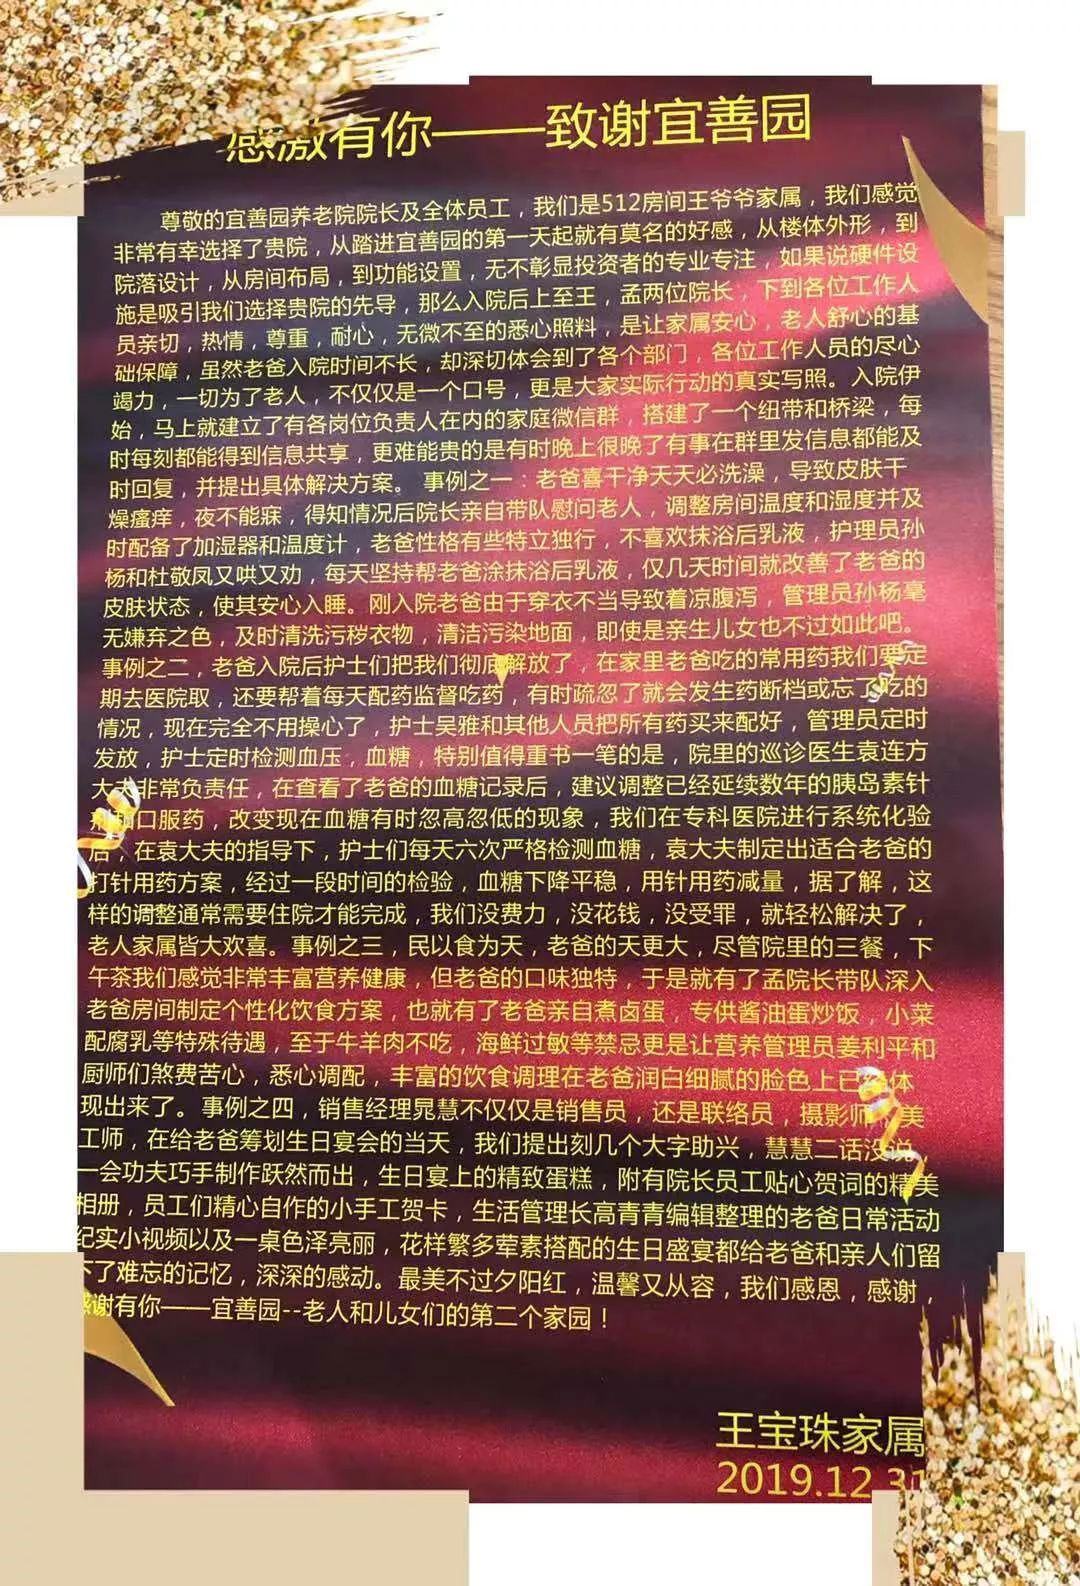 感激有你——致谢宜善园
尊敬的宜善园养老院院长及全体员工，我们是512房间王爷爷家属，我们感觉
非常有幸选择了贵院，从踏进宜善园的第一天起就有莫名的好感，从楼体外形，到
院落设计，从房间布局，到功能设置，无不彰显投资者的专业专注，如果说硬件设
施是吸引我们选择贵院的先导，那么入院后上至王，孟两位院长，下到各位工作人
员亲切，热情，尊重，耐心，无微不至的悉心照料，是让家属安心，老人舒心的基
础保障，虽然老爸入院时间不长，却深切体会到了各个部门，各位工作人员的尽心
竭力，一切为了老人，不仅仅是一个口号，更是大家实际行动的真实写照。入院伊
始，马上就建立了有各岗位负责人在内的家庭微信群，搭建了一个纽带和桥梁，每
时每刻都能得到信息共享，更难能贵的是有时晚上很晚了有事在群里发信息都能及
时回复，并提出具体解决方案。 事例之一：老爸喜干净天天必洗澡，导致皮肤干
燥瘙痒，夜不能寐，得知情况后院长亲自带队慰问老人，调整房间温度和湿度并及
时配备了加湿器和温度计，老爸性格有些特立独行，不喜欢抹浴后乳液，护理员孙
杨和杜敬凤又哄又劝，每天坚持帮老爸涂抹浴后乳液，仅几天时间就改善了老爸的
皮肤状态，使其安心入睡。刚入院老爸由于穿衣不当导致着凉腹泻，管理员孙杨毫
无嫌弃之色，及时清洗污秽衣物，清洁污染地面，即使是亲生儿女也不过如此吧。
事例之二，老爸入院后护士们把我们彻底解放了，在家里老爸吃的常用药我们要定
期去医院取，还要帮着每天配药监督吃药，有时疏忽了就会发生药断档或忘了吃的
情况，现在完全不用操心了，护士吴雅和其他人员把所有药买来配好，管理员定时
发放，护士定时检测血压，血糖，特别值得重书一笔的是，院里的巡诊医生袁连方
大夫非常负责任，在查看了老爸的血糖记录后，建议调整已经延续数年的胰岛素针
剂和口服药，改变现在血糖有时忽高忽低的现象，我们在专科医院进行系统化验
后，在袁大夫的指导下，护士们每天六次严格检测血糖，袁大夫制定出适合老爸的
打针用药方案，经过一段时间的检验，血糖下降平稳，用针用药减量，据了解，这
样的调整通常需要住院才能完成，我们没费力，没花钱，没受罪，就轻松解决了，
老人家属皆大欢喜。事例之三，民以食为天，老爸的天更大，尽管院里的三餐，下
午茶我们感觉非常丰富营养健康，但老爸的口味独特，于是就有了孟院长带队深入
老爸房间制定个性化饮食方案，也就有了老爸亲自煮卤蛋，专供酱油蛋炒饭，小菜
配腐乳等特殊待遇，至于牛羊肉不吃，海鲜过敏等禁忌更是让营养管理员姜利平和
厨师们煞费苦心，悉心调配，丰富的饮食调理在老爸润白细腻的脸色上已经体
现出来了。事例之四，销售经理晁慧不仅仅是销售员，还是联络员，摄影师，美
工师，在给老爸筹划生日宴会的当天，我们提出刻几个大字助兴，慧慧二话没说，
一会功夫巧手制作跃然而出，生日宴上的精致蛋糕，附有院长员工贴心贺词的精美
相册，员工们精心自作的小手工贺卡，生活管理长高青青编辑整理的老爸日常活动
纪实小视频以及一桌色泽亮丽，花样繁多荤素搭配的生日盛宴都给老爸和亲人们留
下了难忘的记忆，深深的感动。最美不过夕阳红，温馨又从容，我们感恩，感谢，
感谢有你——宜善园--老人和儿女们的第二个家园！
王宝珠家属
2019.12.31